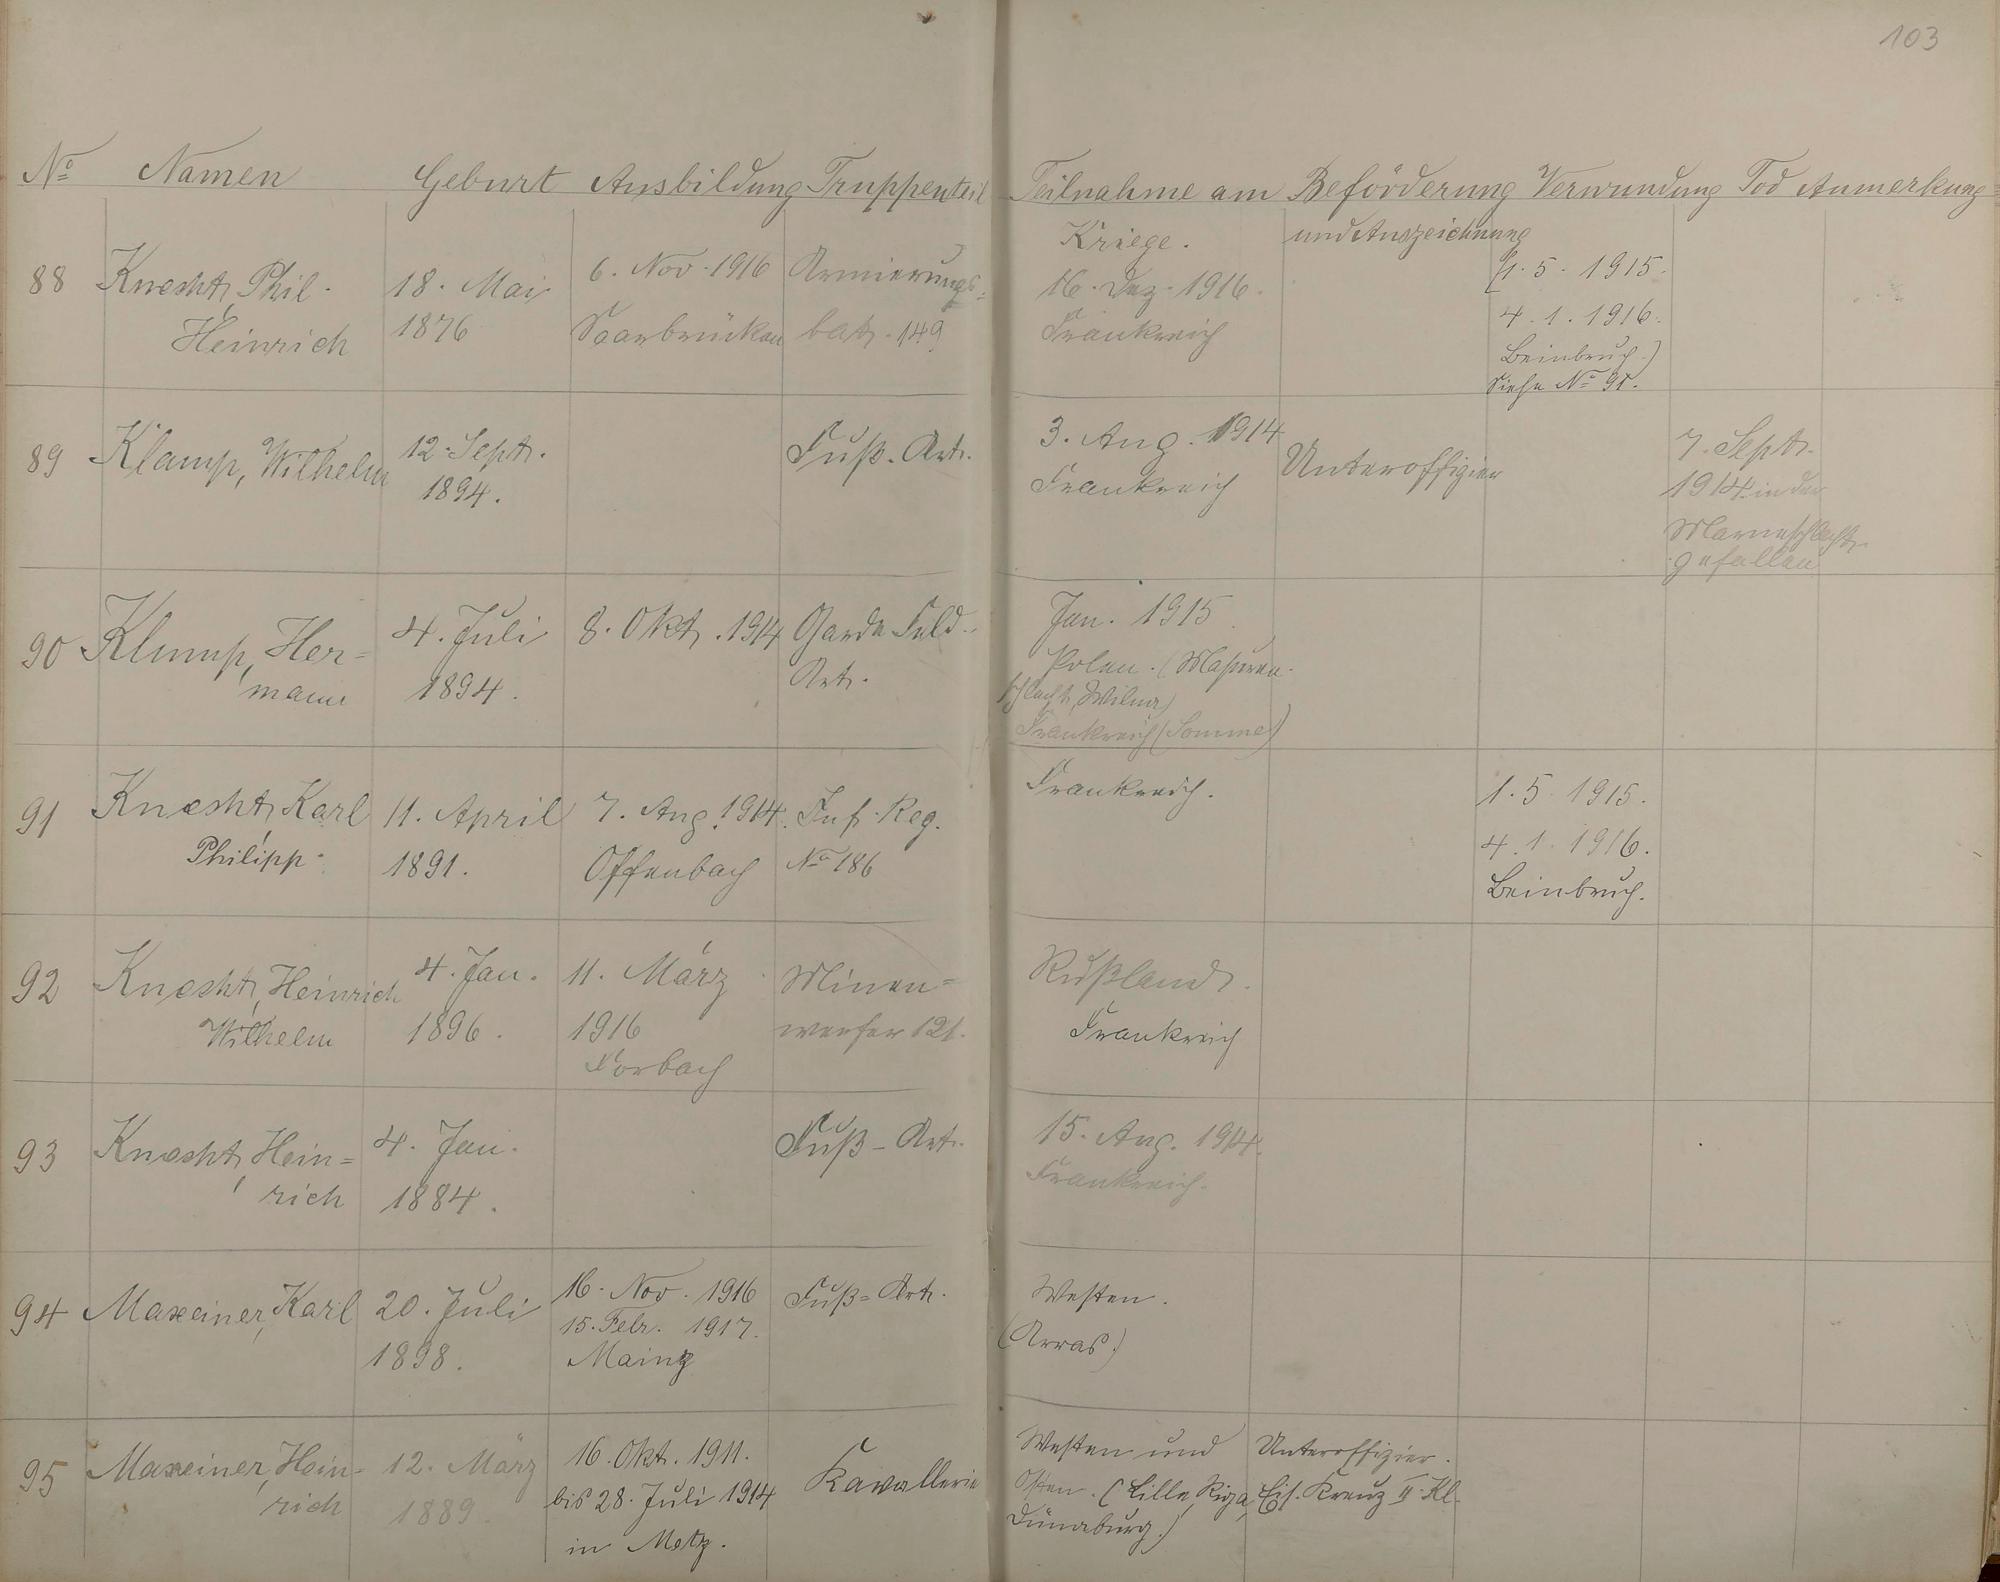 103
No Namen Geburt Ausbildung Truppenteil Teilnahme am Beförderung Verwundung Tod Anmerkung
Kriege. und Auszeichnung
88 Knecht, Phil. 18. Mai 6. Nov. 1916 Armierungs= 16. Dez. 1916. (1. 5. 1915.
Heinrich 1876 Saarbrücken batr. 149 Frankreich 4. 1. 1916.
Beinbruch.)
Siehe No 91.
89 Klamp, Wilhelm 12. Sept. Fuß-Art. 3. Aug. 1914 Unteroffizier 7. Sept.
1894. Frankreich 1914 in der
Marneschlacht
gefallen
90 Klump, Her= 4. Juli 8. Okt. 1914 Garde Feld- Jan. 1915
mann 1894. Art. Polen. (Masuren-
schlacht, Wilna)
Frankreich (Somme)
91 Knecht, Karl 11. April 7. Aug. 1914. Inf. Reg. Frankreich. 1. 5. 1915.
Philipp 1891. Offenbach No 186 4. 1. 1916.
Beinbruch.
92 Knecht, Heinrich 4. Jan. 11. März Minen= Rußland.
Wilhelm 1896. 1916 werfer 121. Frankreich
Forbach
93 Knecht, Hein= 4. Jan. Fuß-Art. 15. Aug. 1914.
rich 1884. Frankreich.
94 Maxeiner, Karl 20. Juli 16. Nov. 1916 Fuß=Art. Westen.
1898. 15. Febr. 1917. (Arras.)
Mainz
95 Maxeiner, Hein- 12. März 16. Okt. 1911. Kavallerie Westen und Unteroffizier.
rich 1889. bis 28. Juli 1914 Osten. (Lille, Riga, Eis. Kreuz II. Kl.
in Metz. Dünaburg.)